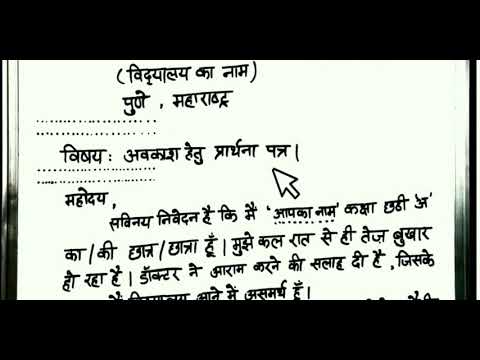 (विद्यालय का नाम)
पुणे , महाराष्ट्र
विषय: अवकाश हेतु प्रार्थना पत्र |
महोदय ,
सविनय निवेदन है कि मैं 'आपका नाम' कक्षा छठी 'अ'
का/की छात्र/छात्रा हूँ | मुझे कल रात से ही तेज़ बुखार
हो रहा है | डॉक्टर ने आराम करने की सलाह दी है , जिसके
आने में असमर्थ हूँ |